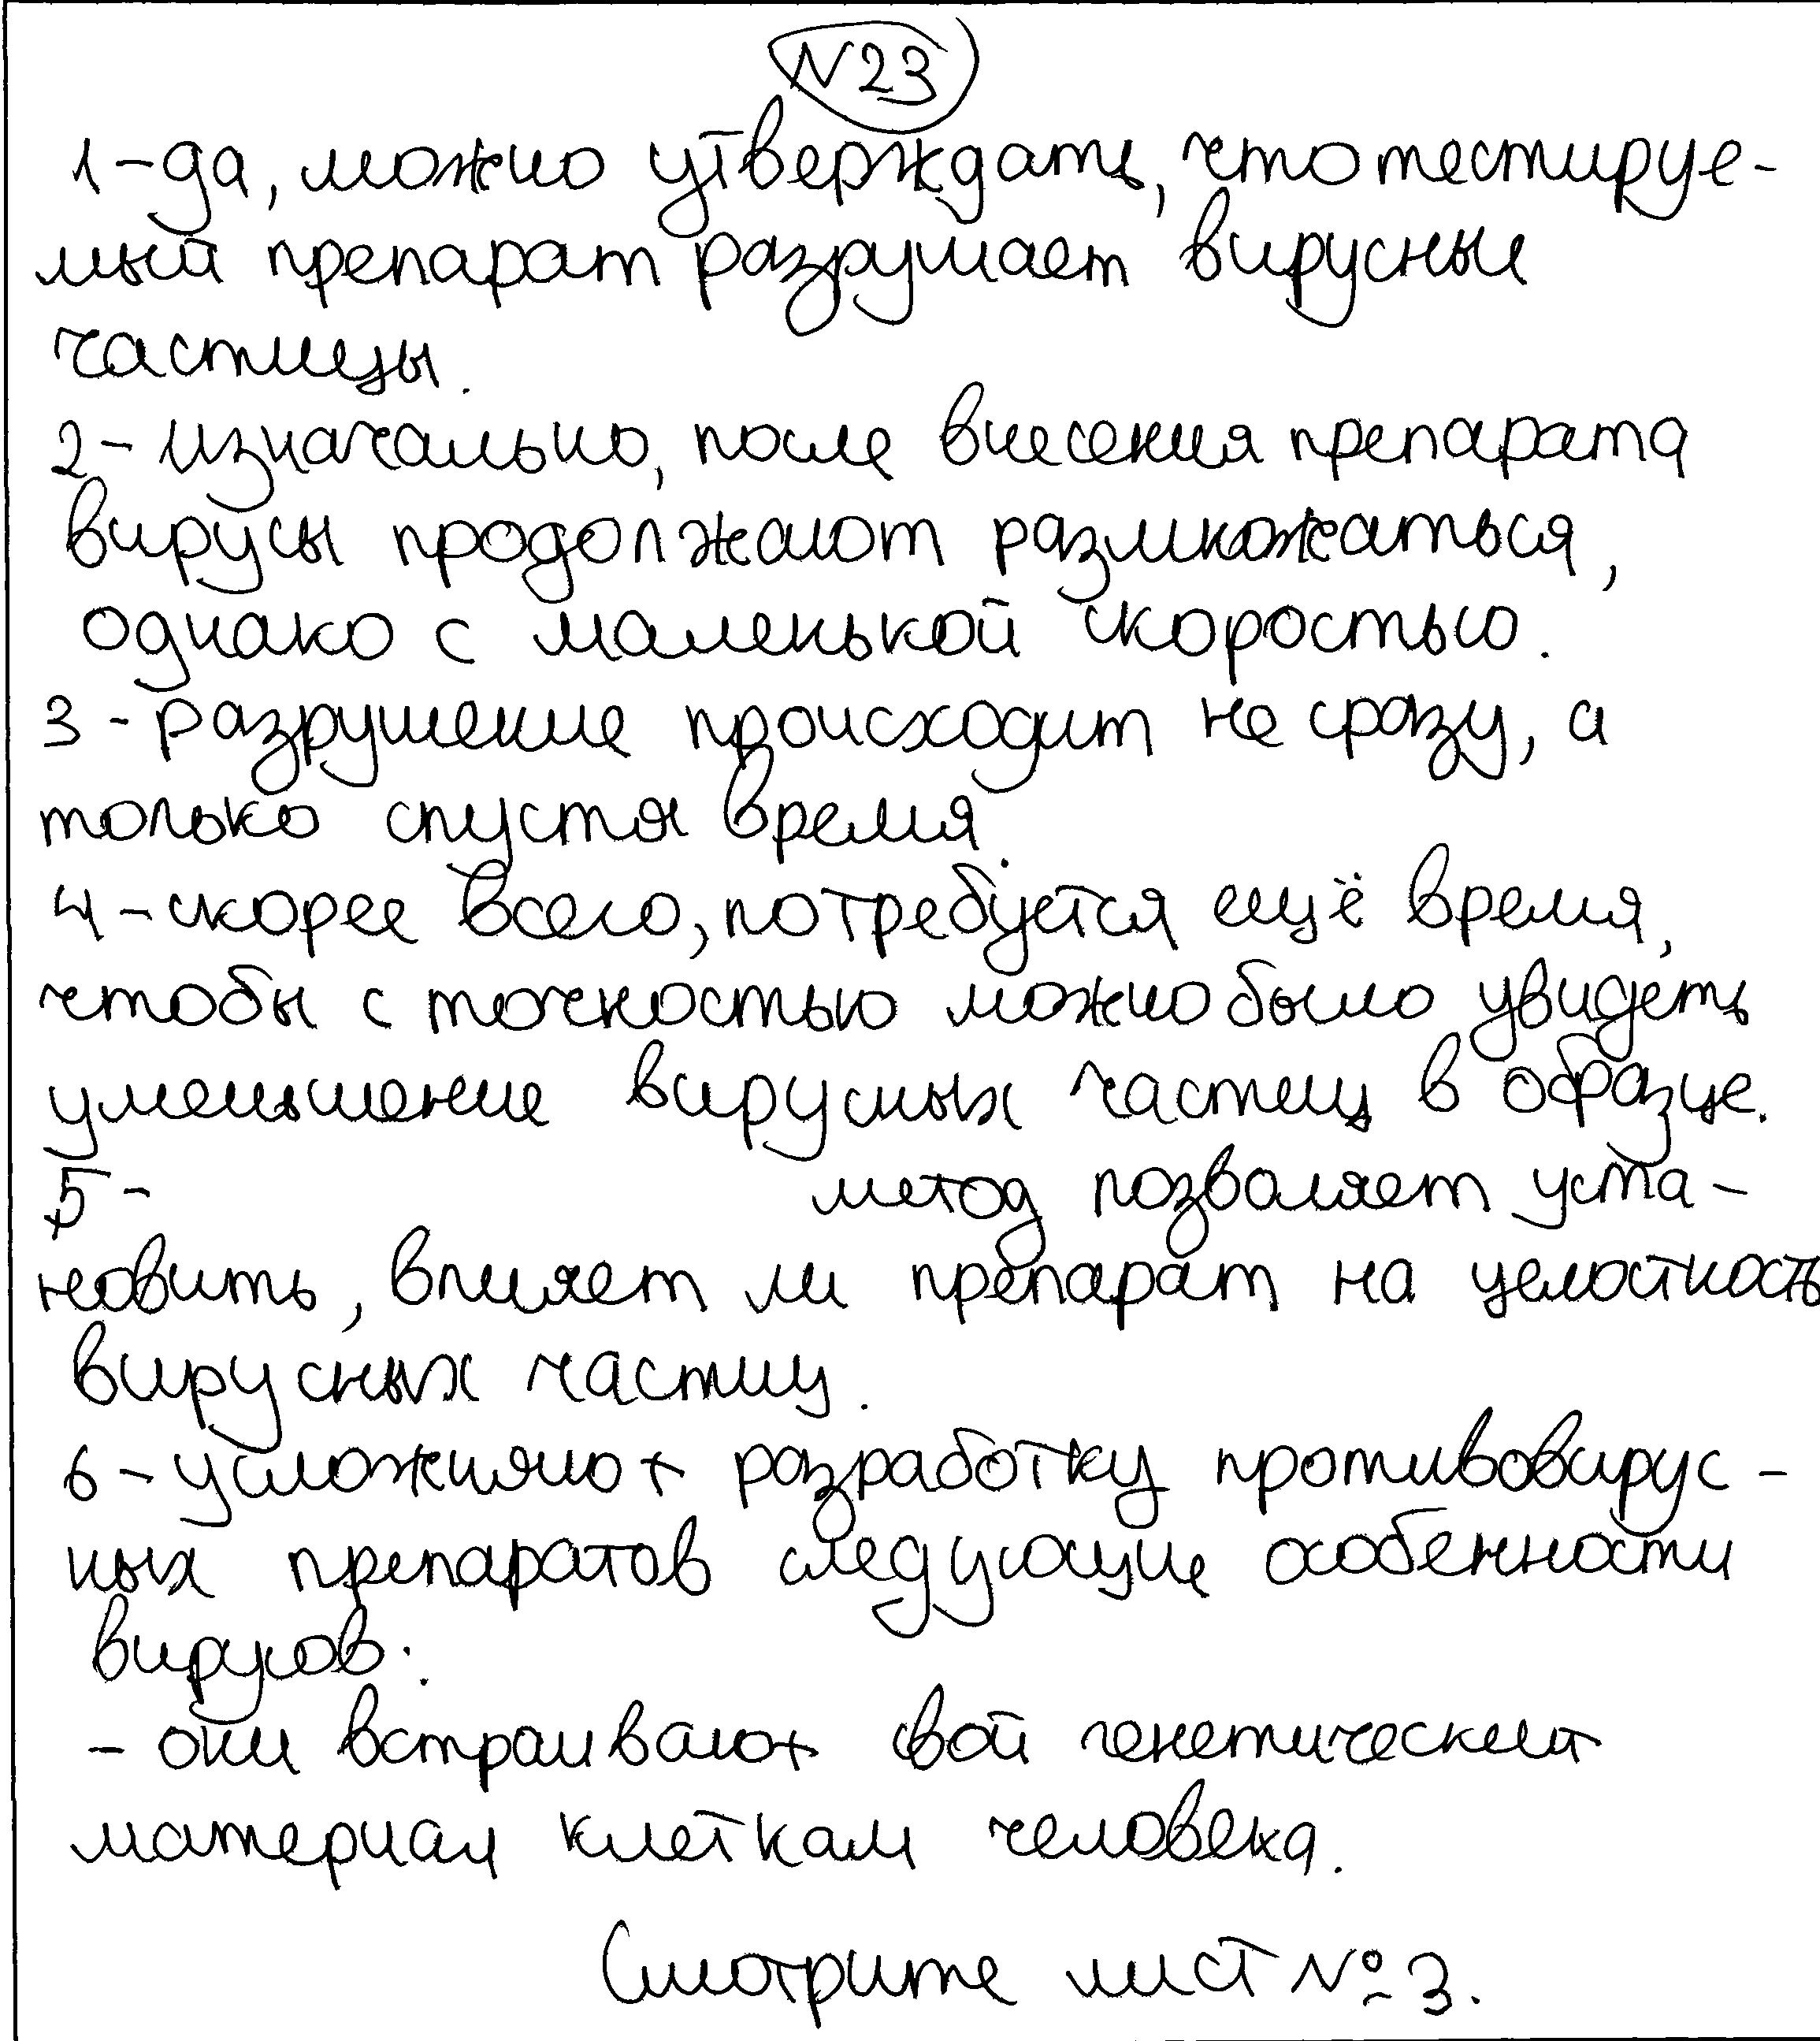 N23
1-да, можно утверждать, что тестируе-
мый препарат разрушает вирусные
частицы.
2- изначально, после внесения препарата
вирусы продолжают размножаться,
однако с маленькой скоростью.
3 - разрушение происходит не сразу, а
только спустя время.
4-скорее всего, потребуется ещё время,
чтобы с точностью можно было увидеть
уменьшение вирусных частиц в образце.
5- метод позволяет уста-
новить, влияет ли препарат на целостность
вирусных частиц.
6-усложняют разработку противовирус-
ных препаратов следующие особенности
вирусов:
- они встраивают свой генетический
материал клеткам человека.
Смотрите лист №3.